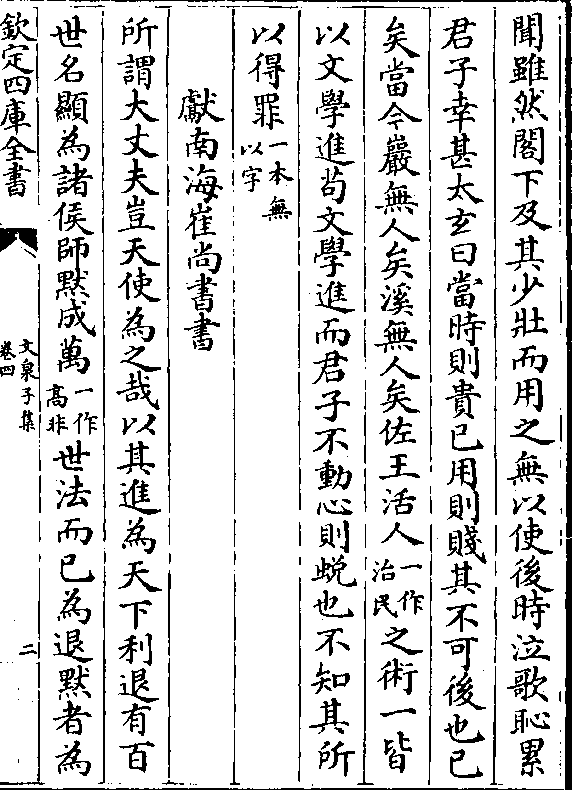 聞雖然閣下及其少壯而用之無以使後時泣歌恥累
君子幸甚太玄曰當時則貴已用則賤其不可後也已
矣當今巖無人矣溪無人矣佐王活人一作治民之術一皆
以文學進茍文學進而君子不動心則蛻也不知其所
以得罪一本無以字
獻南海崔尚書書
所謂大丈夫豈天使為之哉以其進為天下利退有百
世名顯為諸侯師默成萬一作高非世法而已為退默者為
欽定四庫全書
文泉子集
卷四
二